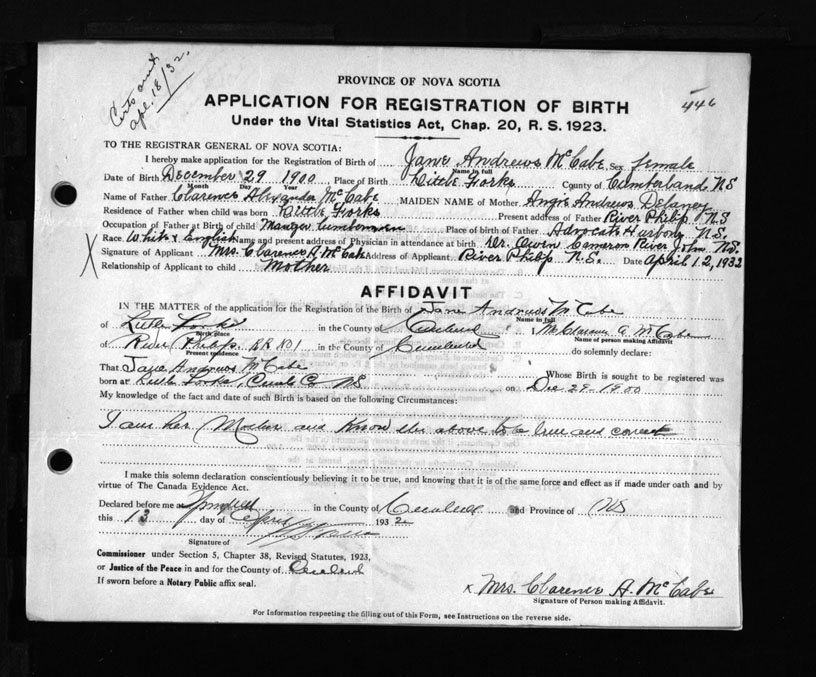 Certs sent
Apl. 18/32.
446
PROVINCE OF NOVA SCOTIA
APPLICATION FOR REGISTRATION OF BIRTH
Under the Vital Statistics Act, Chap. 20, R. S. 1923.
TO THE REGISTRAR GENERAL OF NOVA SCOTIA:
I hereby make application for the Registration of Birth of Jane Andrews McCabe Sex female
Name in full
Date of Birth December 29 1900 Place of Birth Little Forks County of Cumberland N.S
Month Day Year
Name of Father Clarence Alexander McCabe MAIDEN NAME of Mother Andrews Delaney
Residence of Father when child was born Little Forks Present address of Father River Philip N.S
Occupation of Father at Birth of child Place of birth of Father Advocate Harbour N.S.
Race. White English Name and present address of Physician in attendance at birth Dr. Owen Cameron River John N.S.
X Signature of Applicant Mrs. Clarence A. McCabe Address of Applicant River Philip N.S. Date April 12, 1932
Relationship of Applicant to child Mother
AFFIDAVIT
IN THE MATTER of the application for the Registration of the Birth of Jane Andrews McCabe
Name in full
of Little Forks in the County of I Mrs Clarence A. McCabe
Birth place Name of person making Affidavit
of River Philip RR No 1 in the County of do solemnly declare:
Present residence
That Jane Andrews McCabe Whose Birth is sought to be registered was
born at Little Forks, Cumb Co NS on Dec 29-1900
My knowledge of the fact and date of such Birth is based on the following Circumstances:
I am her Mother and know the above to be true and correct
I make this solemn declaration conscientiously believing it to be true, and knowing that it is of the same force and effect as if made under oath and by
virtue of The Canada Evidence Act.
Declared before me at in the County of and Province of NS
this 13 day of April 1932
Signature of
Commissioner under Section 5, Chapter 38, Revised Statutes, 1923,
or Justice of the Peace in and for the County of
If sworn before a Notary Public affix seal.
x Mrs. Clarence A. McCabe
Signature of Person making Affidavit.
For Information respecting the filling out of this Form, see Instructions on the reverse side.